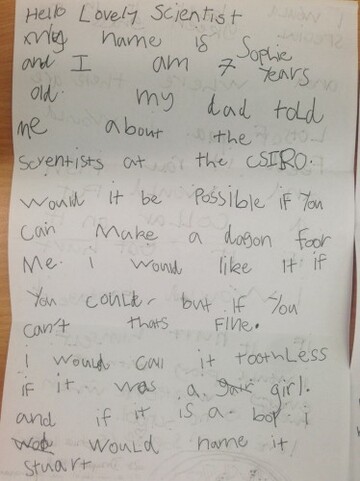 Hello Lovely Scientist
my name is Sophie
and I am 7 Years
old. my dad told
me about the
scyentists at the CSIRO.
Would it be possible if You
can Make a dagon foor
Me. i would like it if
You could, but if You
can't thats Fine.
i would call it toothless
if it was a girl.
and if it is a boy i
would name it
Stuart